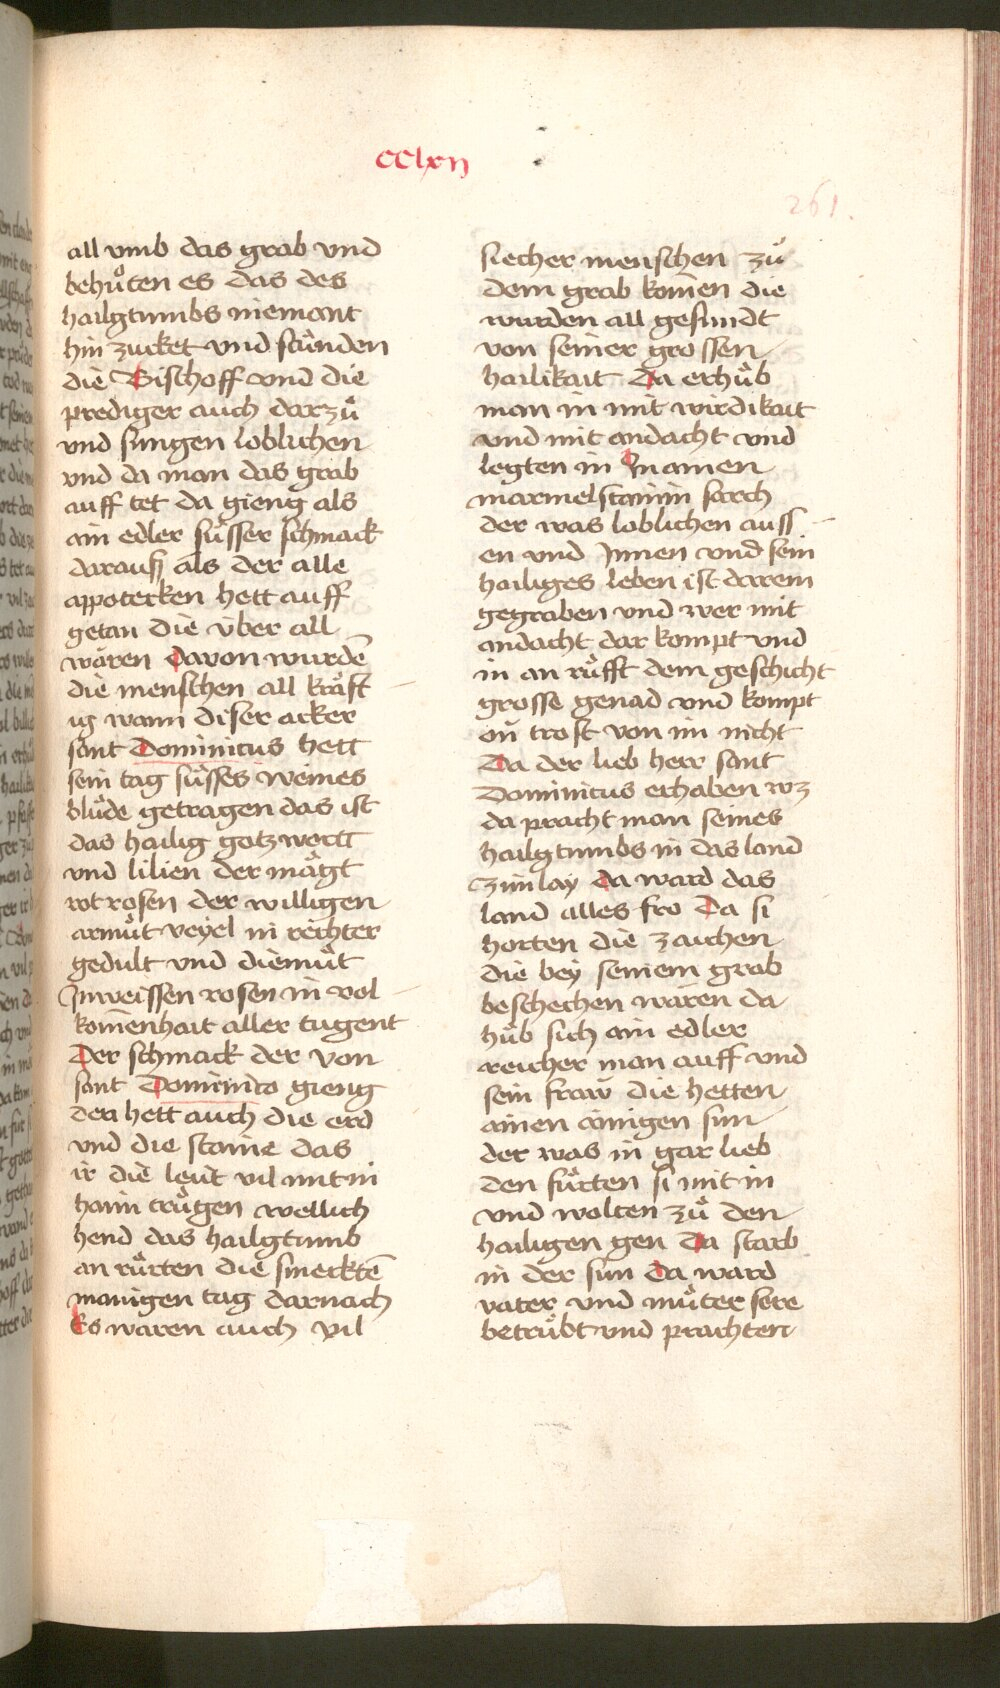 CClxij
261.
all vmb das grab vnd
behuͦten es das des
hailgtumbs niemant
hin zucket vnd stuͦnden
die Bischoff vnd die
prediger auch darzuͦ
vnd sungen loblichen
vnd da man das grab
auff tet da gieng als
ain edler suͤsser schmack
darauß als der alle
appotecken hett auff
getan die vͤber all
waͤren Davon wurdē
die menschen all kraͤft
ig wann diser acker
sant Dominicus hett
sein tag suͤsses weines
bluͤde getragen das ist
das hailig gotzwortt
vnd lilien der maͤgt
rot rosen der willigen
armuͤt veyel in rechter
gedult vnd diemuͤt
Inweissen rosen in vol
kom̄enhait aller tugent
Der schmack der von
sant Dominico gieng
den hett auch die erd
vnd die staine das
ir die leut vil mit in
haim truͦgen wellich
hend das hailgtumb
an ruͤrten die smecktē
manigen tag darnach
Es waren auch vil
siecher menschen zuͦ
dem grab kom̄en die
wurden all gesundt
von seiner grossen
hailikait Da erhuͦb
man in mit wirdikait
vnd mit andacht vnd
legten in Jn ainen
marmelstainin sarch
der was loblichen auss
en vnd Jnnen vnd sein
hailiges leben ist darein
gegraben vnd wer mit
andacht dar kompt vnd
in an ruͤfft dem geschicht
grosse genad vnd kompt
on̄ trost von im nicht
Da der lieb herr sant
Dominicus erhaben wz
da pracht man seines
hailgtumbs in das land
zimlay da ward das
land alles fro Da si
horten die zaichen
die bey seinem grab
beschechen waren da
huͦb sich ain edler
reicher man auff vnd
sein fraw die hetten
ainen ainigen sun
der was in gar lieb
den fuͤrten si mit in
vnd wolten zuͦ den
hailigen gen Da starb
in der sun Da ward
vater vnd muͦter sere
betruͤbt vnd prachten